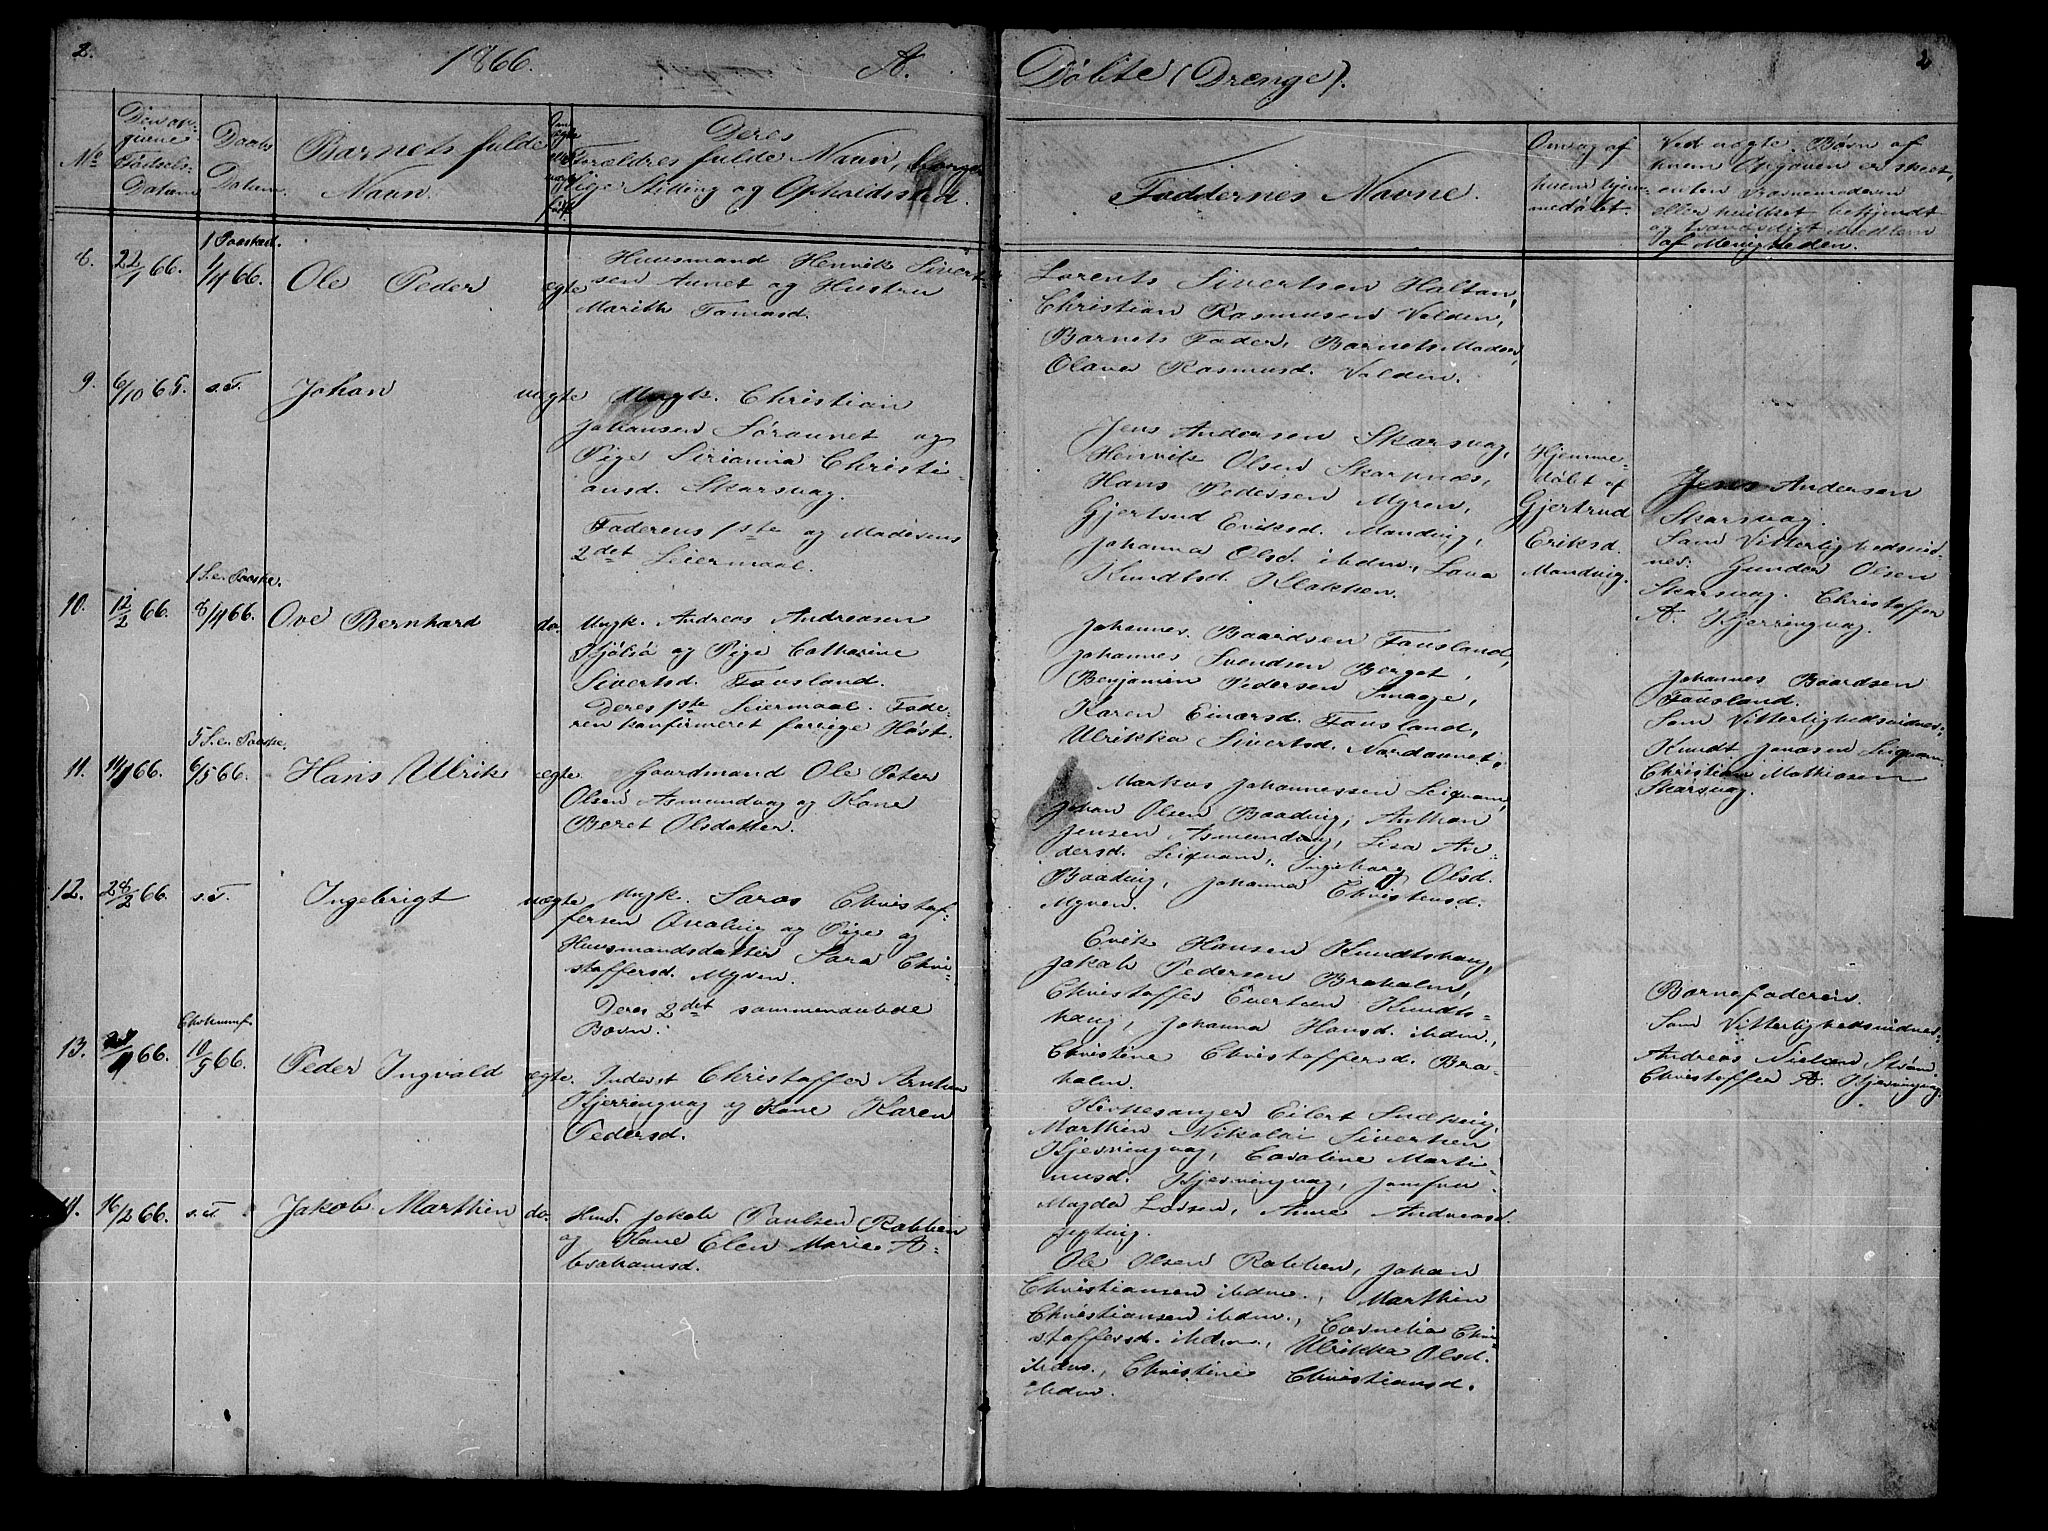 2.
1866.
A.
Døbte (Drenge).
2
No
Den op-
givne
Fødsels-
Datum
Daabs
Datum.
Barnets fulde
Navn.
Deres
Forældres fulde Navn, borger-
lige Stilling og Opholdssted.
Faddernes Navne.
Om og af
hvem hjem-
medøbt.
Ved uægte Børn af
hvem Opgaven er skeet,
enten Præmoderen
eller hvilket bekjendt
og troværdigt Medlem
af Menigheden.
8.
22/1 66.
1 Paasked.
1/4 66.
Ole Peder
ægte
Huusmand Henrik Sivert-
sen Aunet og Hustru
Marith Tomasd.
Lorents Sivertsen Haltan,
Christian Rasmusen Valden,
Barnets Fader, Barnets Moder,
Olava Rasmusd. Valden.
9.
6/10 65.
s.T.
Johan
uægte
Ungk. Christian
Johansen Søraunet og
Pige Sirianna Christi-
ansd. Skarsvag.
Faderens 1ste og Moderens
2det Leiermaal.
Jens Andersen Skarsvag,
Henrik Olsen Skarpnæs,
Hans Pedersen Myren,
Gjertrud Eriksd. Mandvig,
Johanna Olsd. ibdm., Lava
Knudtsd. Klakken.
Hjemme-
døbt af
Gjertrud
Eriksd.
Mandvig.
Jens Andersen
Skarsvag.
Som Vitterlighedsvid-
nes: Gunder Olsen
Skarsvag. Christoffer
A. Kjerringvag.
10.
12/2 66.
1 S. e. Paaske.
8/4 66.
Ove Bernhard
do.
Ungk. Andreas Andreasen
Kjølsø og Pige Catharine
Sivertsd. Fausland.
Deres 1ste Leiermaal. Fade-
ren konfirmeret forrige Høst.
Johannes Baardsen Fausland,
Johannes Svendsen Berget,
Benjamin Pedersen Smaage,
Karen Einarsd. Fausland,
Ulrikka Sivertsd. Nordaunet.
Johannes Baardsen
Fausland.
Som Vitterlighedsvidnes:
Knudt Jonasen Leiqvam
Christian Mathiasen
Skarsvag.
11.
66.
5 S. e. Paaske.
6/5 66.
Hans Ulrik
ægte
Gaardmand Ole Peter
Olsen Asmundvag og Kone
Beret Olsdatter.
Markus Johannessen Leiqvam,
Johan Olsen Baadvig, Anthon
Jensen Asmundvag, Lisa An-
dersd. Leiqvam, Ingeborg Olsd.
Baadvig, Johanna Christensd.
Myren.
12.
28/2 66.
s.T.
Ingebrigt
uægte
Ungk. Saras Christof-
fersen Qvalvig og Pige og
Huusmandsdatter Sara Chri-
stoffersd. Myren.
Deres 2det sammenavlede
Barn.
Erik Hansen Knudtshaug,
Jakob Pedersen Braholm,
Christoffer Evertsen Knudts-
haug, Johanna Hansd. ibdm.,
Christine Christoffersd. Bra-
holm.
Barnefaderen.
Som Vitterlighedsvidnes:
Andreas Nielsen Strøm.
Christoffer A. Kjerringvag.
13.
66.
10/5 66.
Peder Ingvald
ægte.
Inderst Christoffer Arntsen
Kjerringvag og Kone Karen
Pedersd.
Kirkesanger Eilert
Marthin Nikolai Sivertsen
Kjerringvag, Caroline Marti-
nusd. Kjerringvag, Jomfru
Magda Larsen, Anne Andreasd.
14.
16/2 66.
s.T.
Jakob Marthin
do.
Huusm. Jakob Paulsen Rabben
og Kone Elen Marie A-
brahamsd.
Ole Olsen Rabben, Johan
Christiansen ibdm., Marthin
Christiansen ibdm., Cornelia Chri-
stoffersd. ibdm., Ulrikka Olsd.
ibdm., Christine Christiansd.
ibdm.